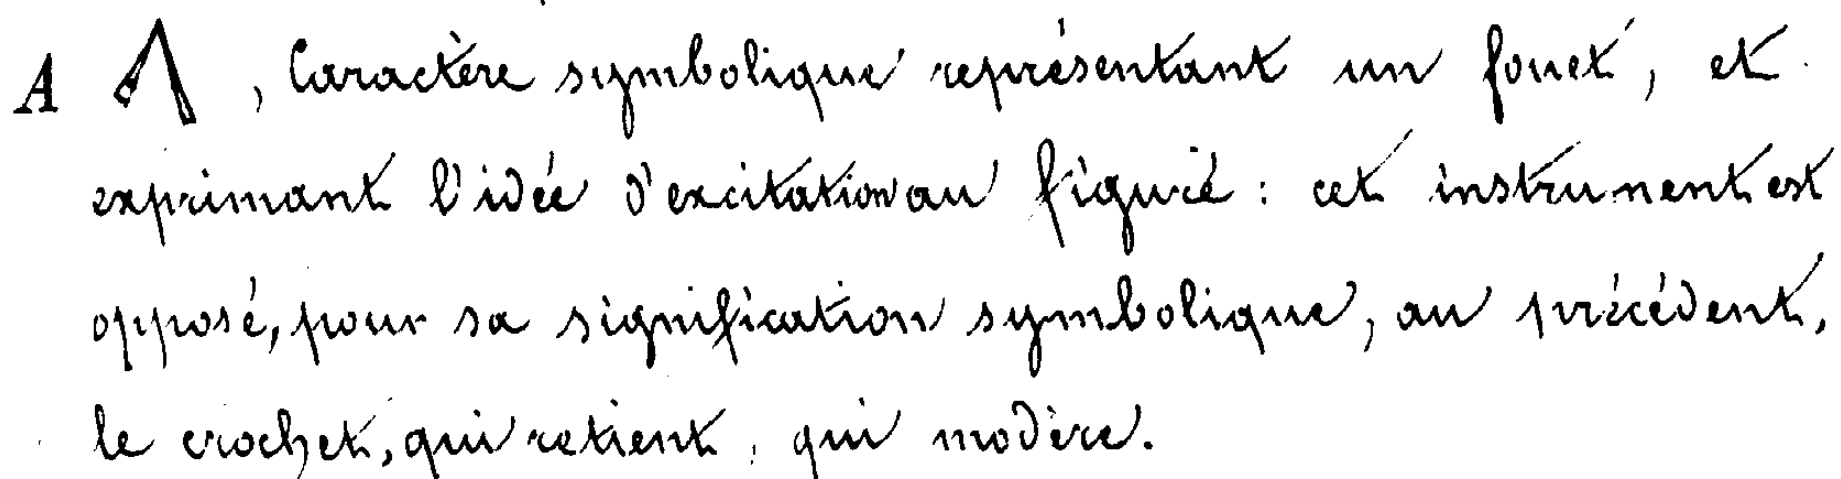 A , Caractère symbolique représentant un fouet, et
exprimant l'idée d'excitation au figuré : cet instrument est
opposé, pour sa signification symbolique, au précédent,
le crochet, qui retient, qui modère.